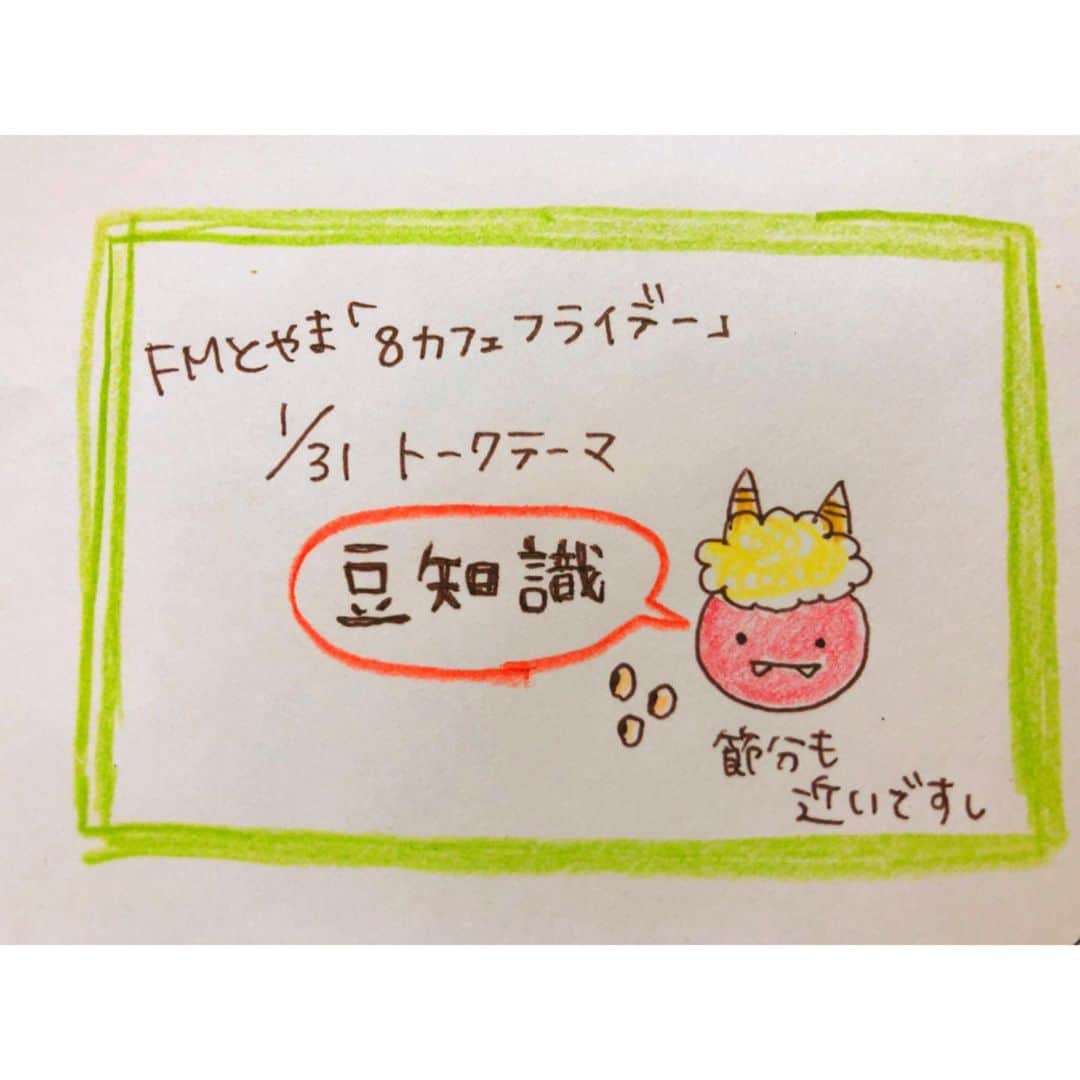 FMとやま「8カフェフライデー」
1/31 トークテーマ
豆知識
節分も
近いですし